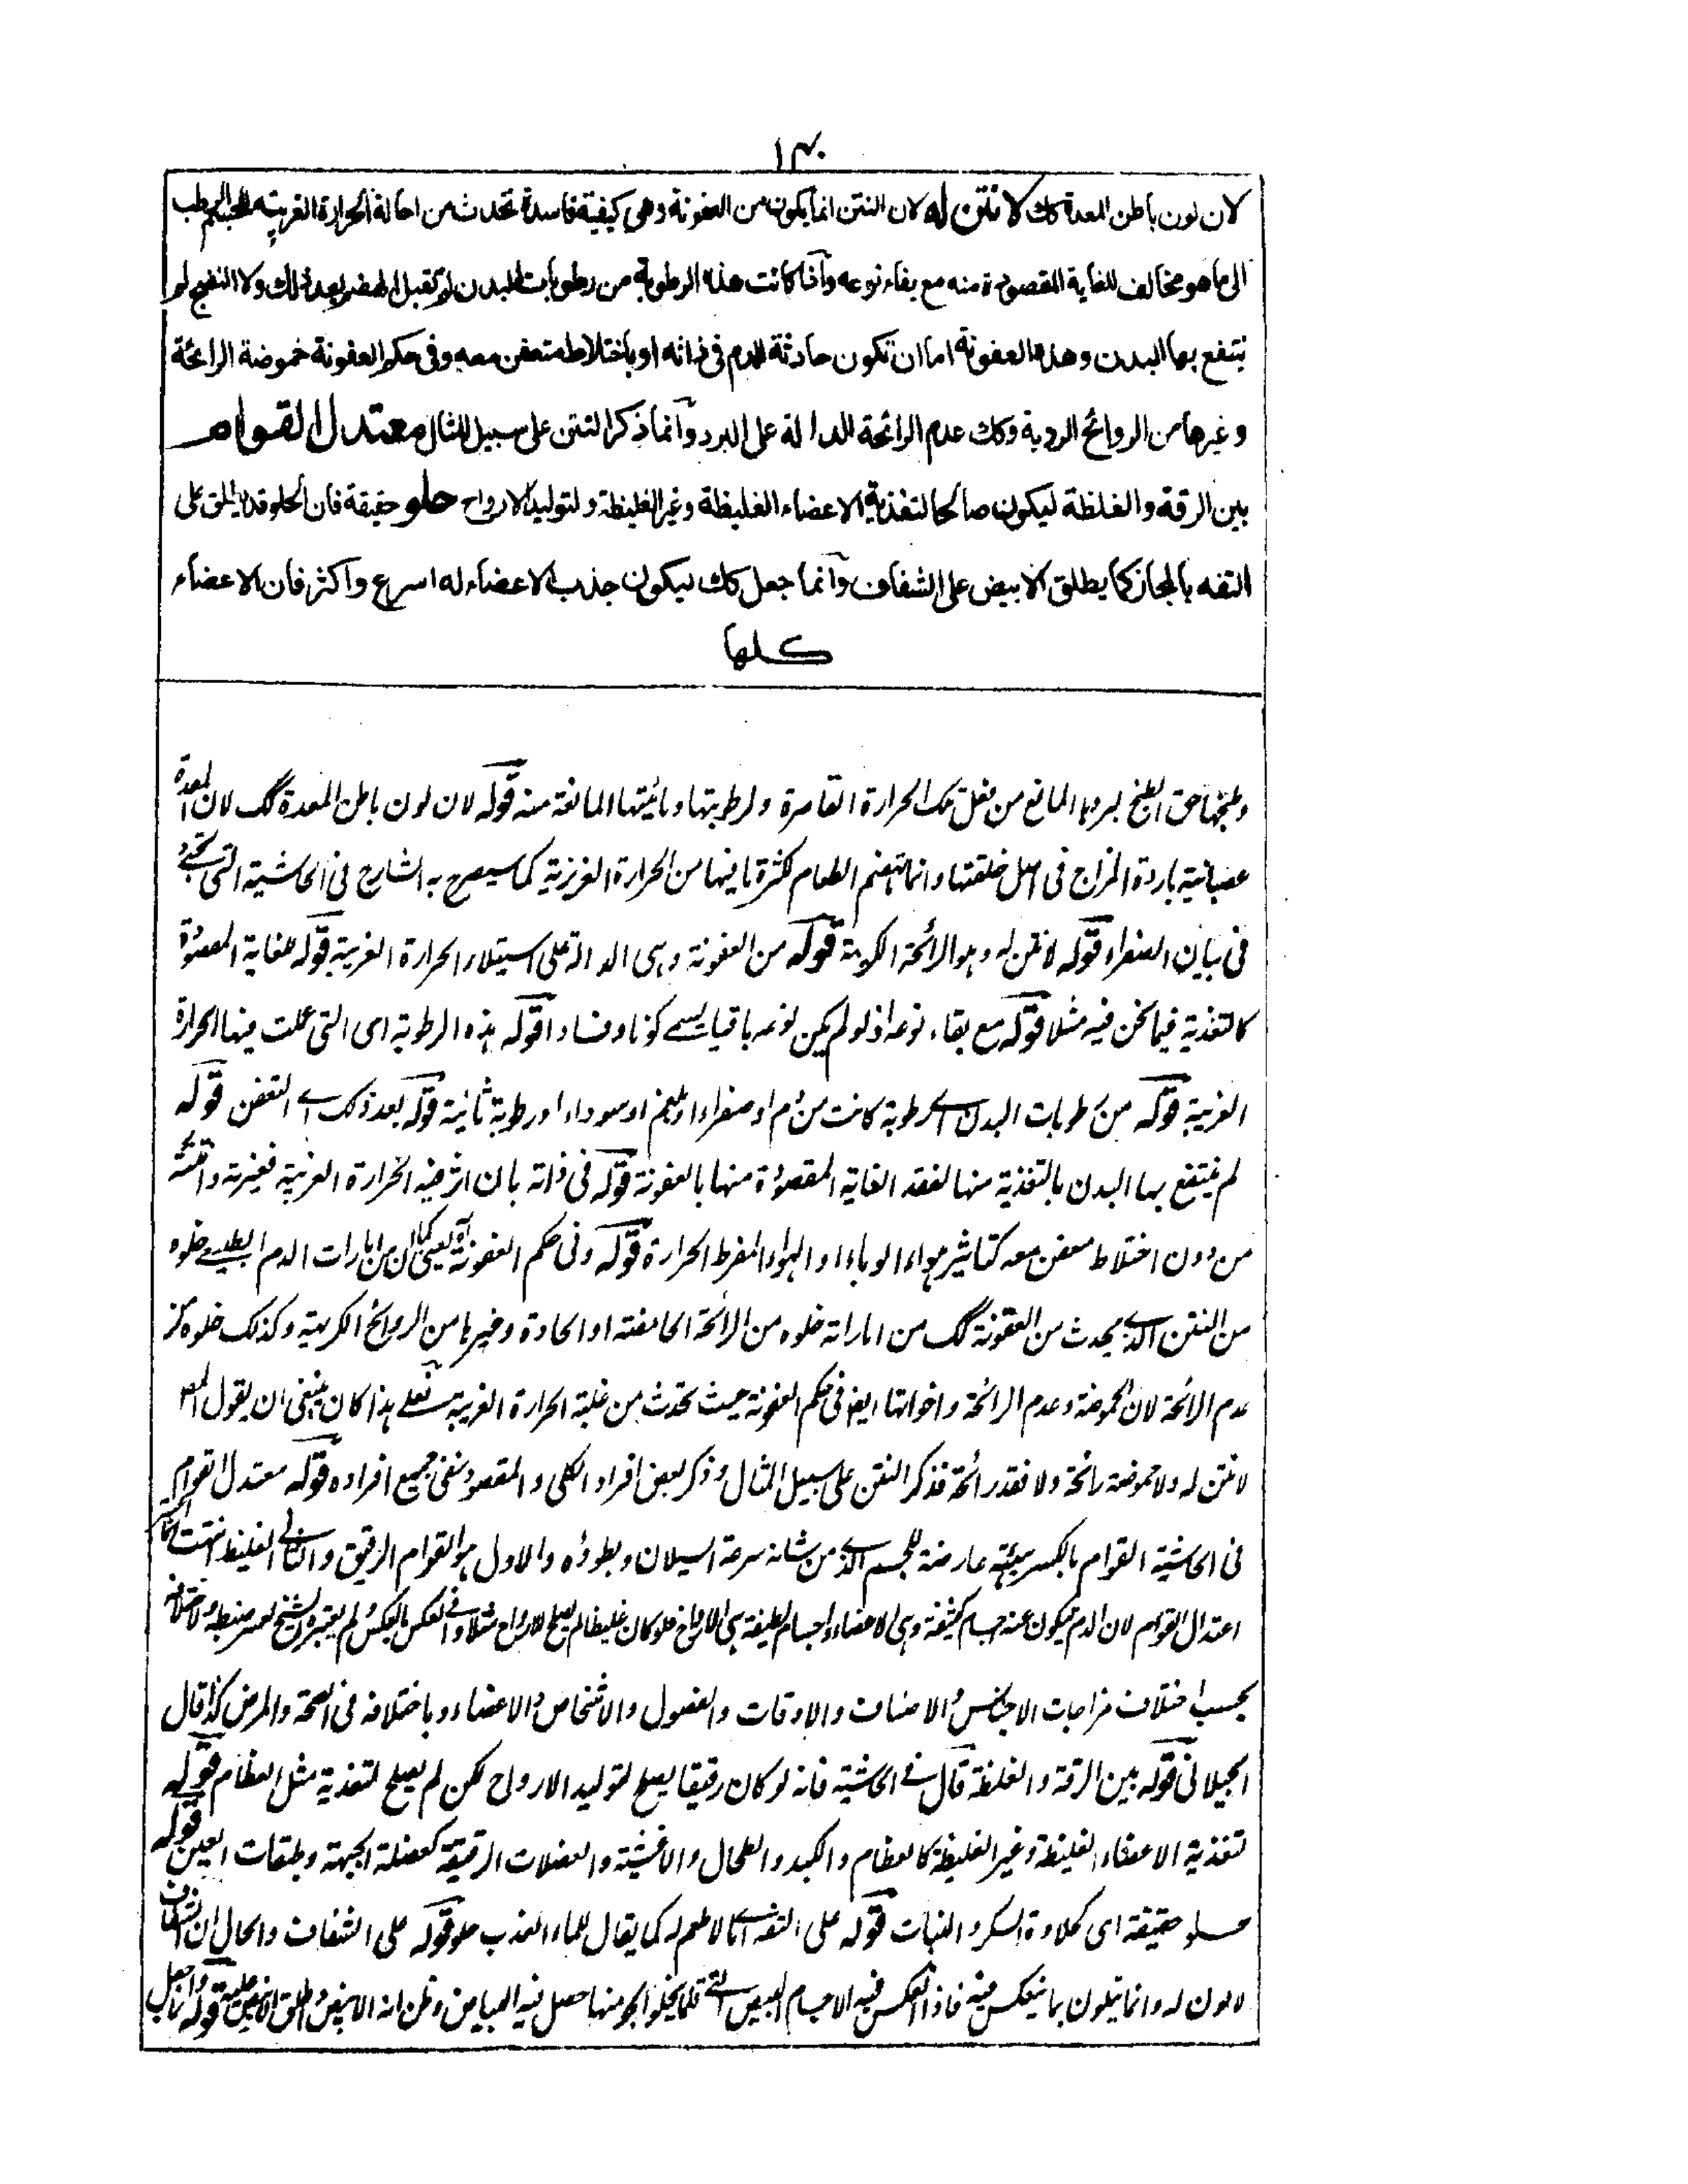 ١٤٠
لان لون باطن المعدة كك لا نتن له لان النتن انما يكون من العفونة وهي كيفية فاسدة تحدث من احالة الحرارة الغريبة للجسم الرطب
الى ما هو مخالف للغاية المقصودة منه مع بقاء نوعه واذا كانت هذه الرطوبة من رطوبات البدن لم تقبل الهضم بعد ذلك ولا النضج لم
ينتفع بها البدن وهذه العفونة اما ان تكون حادثة للدم في ذاته او باختلاط متعفن معه وفي حكم العفونة حموضة الرائحة
وغيرها من الروائح الردية وكك عدم الرائحة الدالة على البرد وانما ذكر النتن على سبيل المثال معتدل القوام
بين الرقة والغلظة ليكون صالحا لتغذية الاعضاء الغليظة وغير الغليظة ولتوليد الارواح حلو حقيقة فان الحلو قد يطلق على
التفه بالمجاز كما يطلق الابيض على الشفاف وانما جعل كك ليكون جذب الاعضاء له اسرع واكثر فان الاعضاء
كلها
وطبخها حق الطبخ لبردها المانع من فعل تلك الحرارة القاصرة ولرطوبتها ومائيتها المانعة منه قوله لان لون باطن المعدة كك لان المعدة
عصبانية باردة المزاج في اصل خلقتها وانما تهضم الطعام لكثرة ما فيها من الحرارة الغريزية كما سيصرح به الشارح في الحاشية التي
في بيان الصفراء قوله لا نتن له وهو الرائحة الكريهة قوله من العفونة وهى الدالة على استيلاء الحرارة الغريبة قوله للغاية المقصودة
كالتغذية فيما نحن فيه مثلا قوله مع بقاء نوعه اذ لو لم يكن نوعه باقيا يسمى كونا وفسادا قوله هذه الرطوبة اى التى عملت فيها الحرارة
الغريبة قوله من رطوبات البدن اى رطوبة كانت من دم او صفراء او بلغم او سوداء او رطوبة ثانية قوله بعد ذلك اى التعفن قوله
لم ينتفع بها البدن بالتغذية منها لفقد الغاية المقصودة منها بالعفونة قوله في ذاته بان اثر فيه الحرارة الغريبة فغيرته
من دون اختلاط معفن معه كتاثير هواء الوباء او الهواء المفرط الحرارة قوله وفى حكم العفونة آه يعنى كما ان من امارات الدم الطبيعى خلوه
من النتن الذى يحدث من العفونة كك من اماراته خلوه من الرائحة الحامضة او الحادة وغيرها من الروائح الكريهة وكذلك خلوه عن
عدم الرائحة لان الحموضة وعدم الرائحة واخواتها ايضا فى حكم العفونة حيث تحدث من غلبة الحرارة الغريبة فعلى هذا كان ينبغى ان يقول المص
لا نتن له ولا حموضة رائحة ولا فقد رائحة فذكر النتن على سبيل المثال وذكر بعض افراد الكلى والمقصود نفى جميع افراده قوله معتدل القوام
فى الحاشية القوام بالكسر هيئة عارضة للجسم الذى من شانه سرعة السيلان وبطوءه والاول هو القوام الرقيق والثانى الغليظ انتهت
اعتدال القوام لان الدم يتكون عنه اجسام كثيفة وهى الاعضاء واجسام لطيفة هى الارواح فلو كان غليظا لم يصلح للارواح مثلا وفى العكس بالعكس ولم يعتبره الشيخ لعسر ضبطه
بحسب اختلاف مزاجات الاجناس والاصناف والاوقات والفصول والاشخاص والاعضاء وباختلافه فى الصحة والمرض كذا قال
الجيلانى قوله بين الرقة والغلظة قال فى الحاشية فانه لو كان رقيقا يصلح لتوليد الارواح لكن لم يصلح لتغذية مثل العظام قوله
لتغذية الاعضاء الغليظة وغير الغليظة كالعظام والكبد والطحال والاغشية والعضلات الرقيقة كعضلة الجبهة وطبقات العين قوله
حلو حقيقة اى كحلاوة السكر والنبات قوله على التفه اى ما لا طعم له كما يقال للماء العذب حلو قوله على الشفاف والحال ان الشفاف
لا لون له وانما يتلون بما ينعكس فيه فاذا انعكس فيه الاجسام البيض التى قلما يخلو الجو منها حصل فيه البياض وظن انه الابيض واطلق الابيض عليه قوله وانما جعل